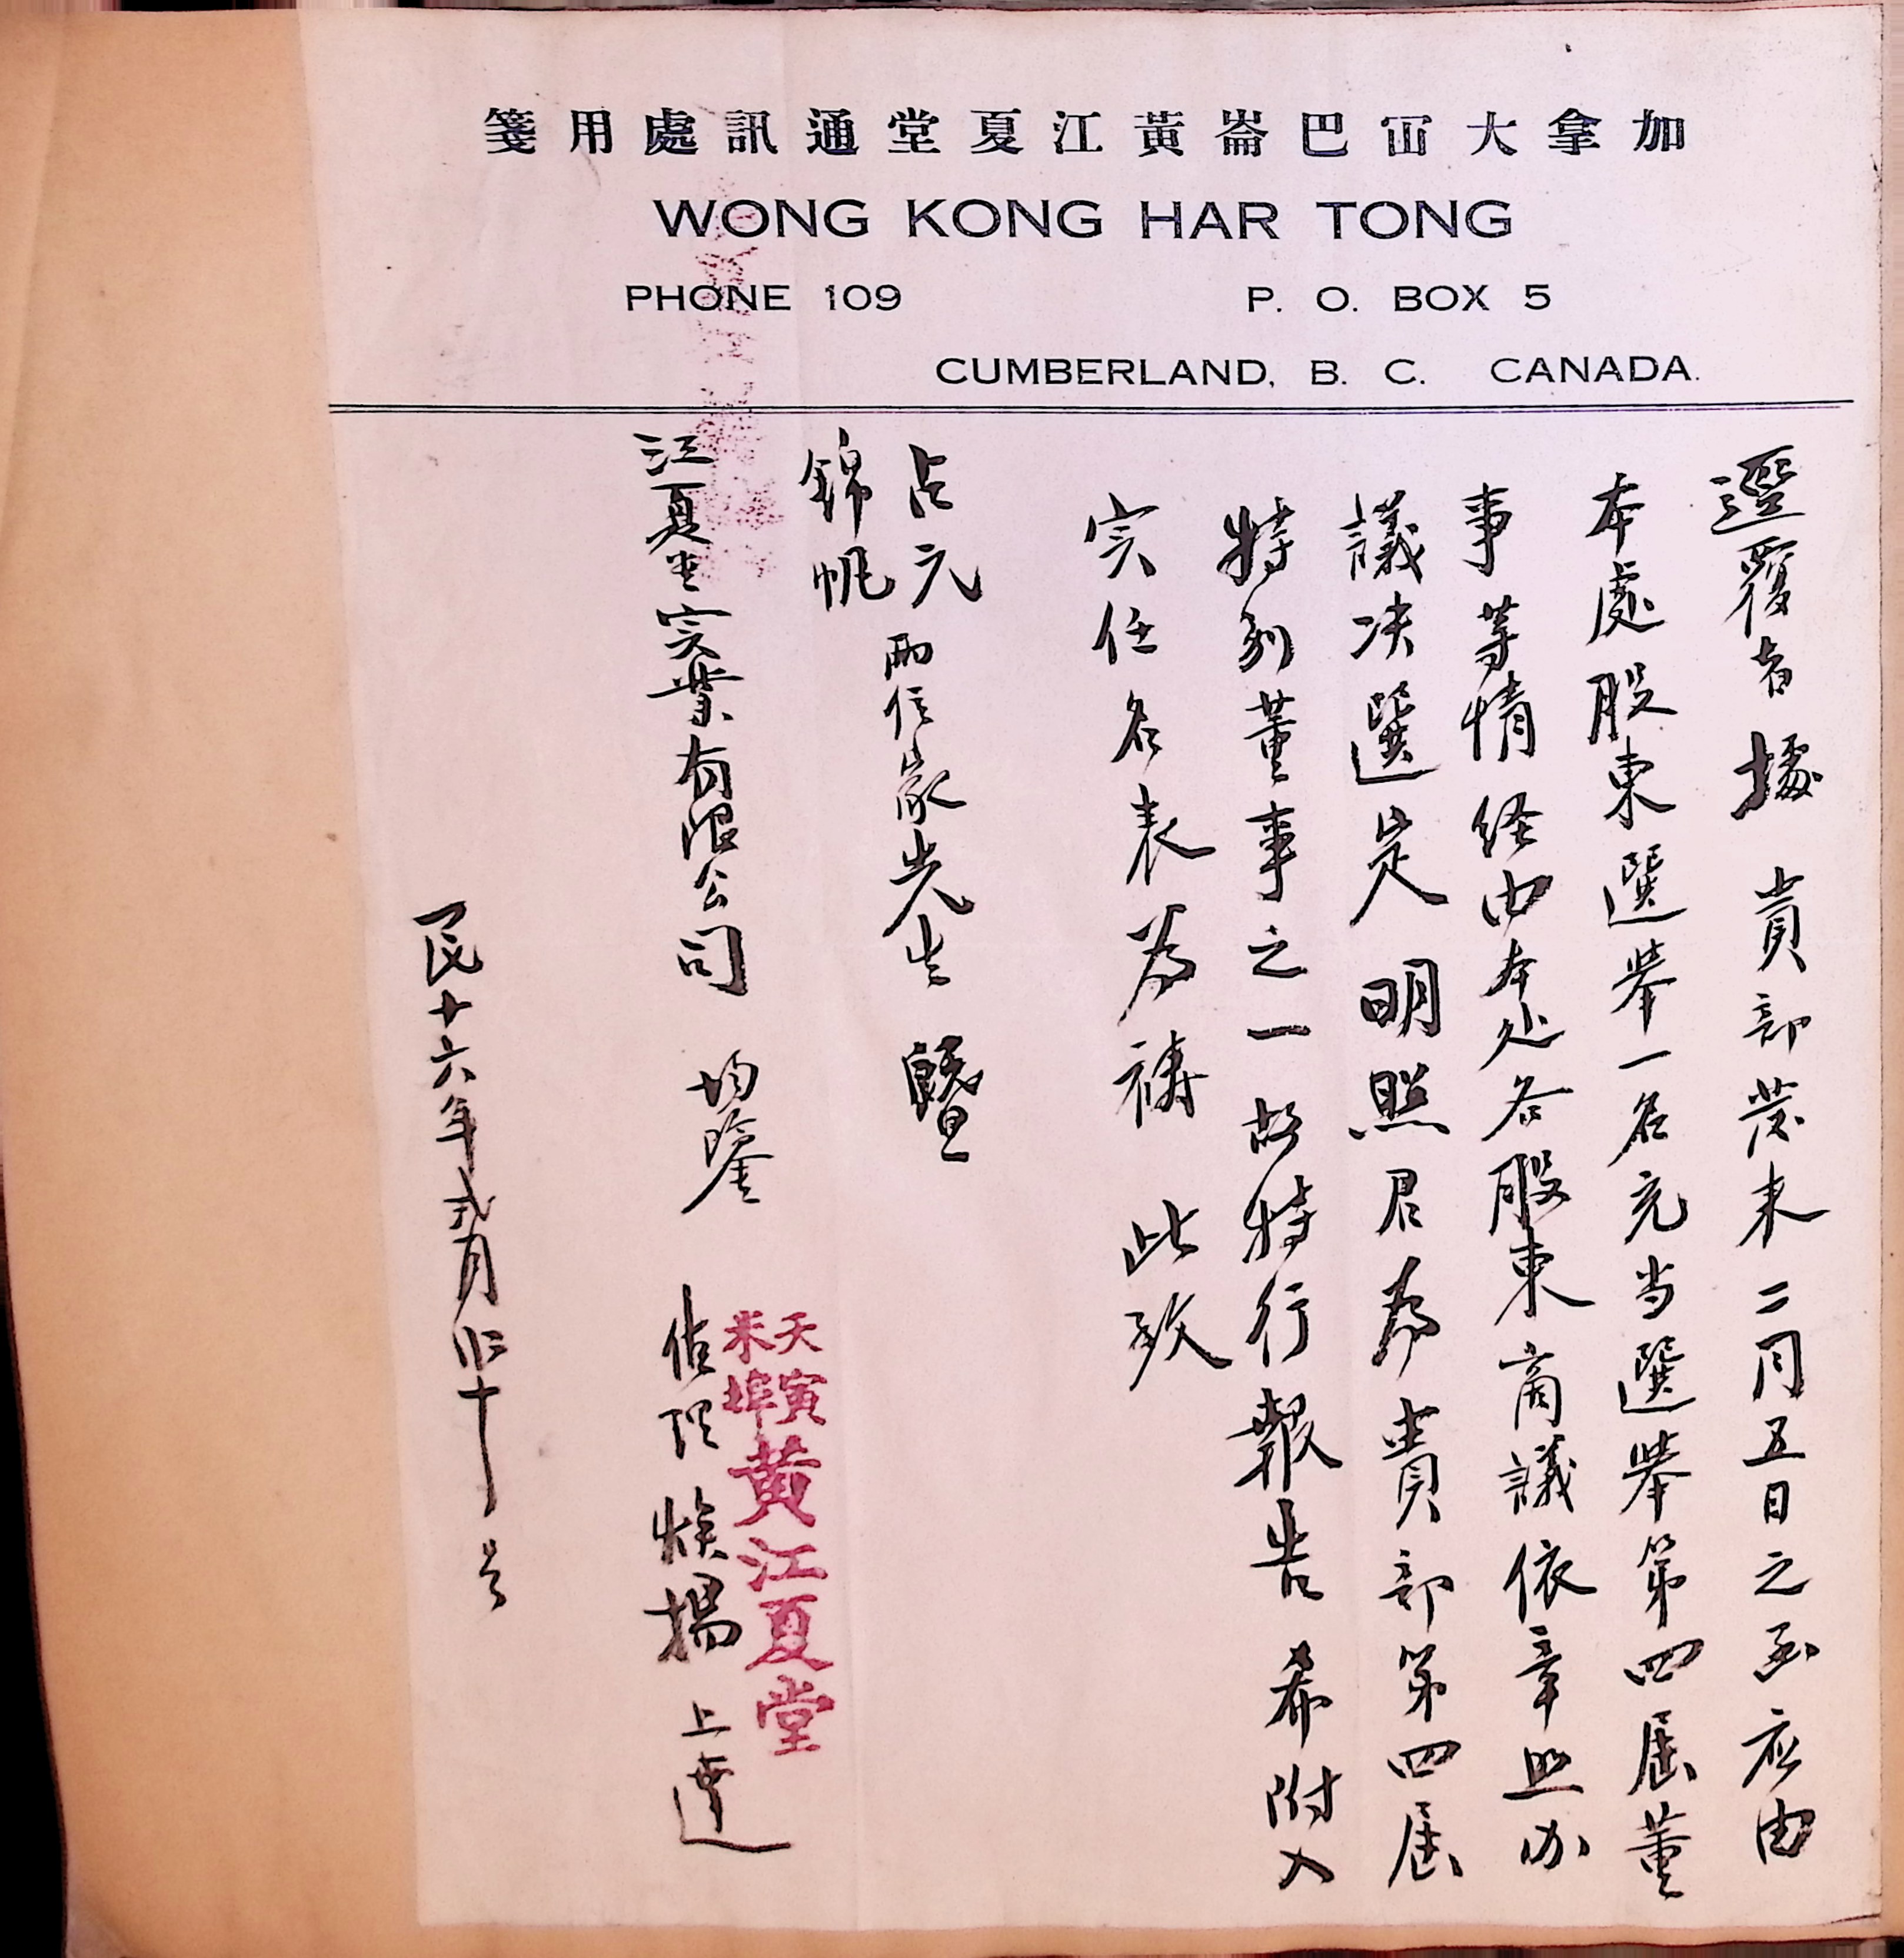 加拿大冚巴崙黃江夏堂通訊處用箋
WONG KONG HAR TONG
PHONE 109 P. O. BOX 5
CUMBERLAND, B. C. CANADA.
逕覆者據 貴部發來二月五日之函应由
本處股東選举一名充当選举第四届董
事等情経由本处各股東商議依章照办
議决選定 明照君為貴部第四届
特别董事之一故特行報告希附入
实任名表為禱 此致
占元
錦帆
両位家先生 暨
江夏堂实業有限公司 均鑒
天寅
米埠
黄江夏堂
煥揚 上達
民十六年弍月 十号